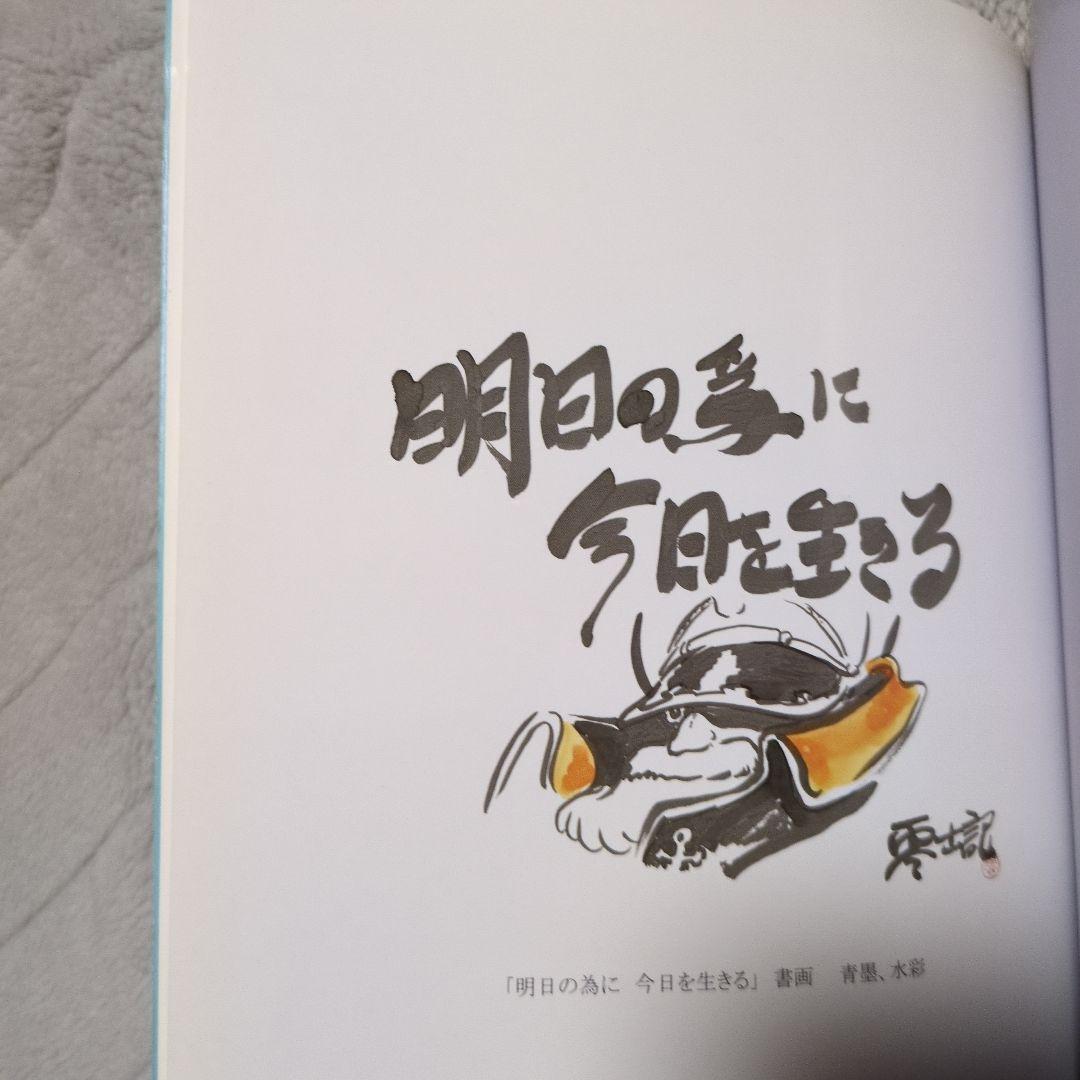 明日の為に
今日を生きる
零士記
「明日の為に 今日を生きる」 書画 青墨、水彩